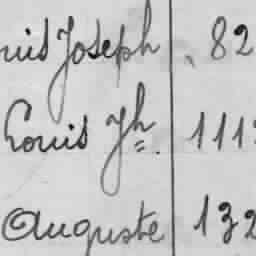 uis Joseph 82
Louis Jh. 111
Auguste 132